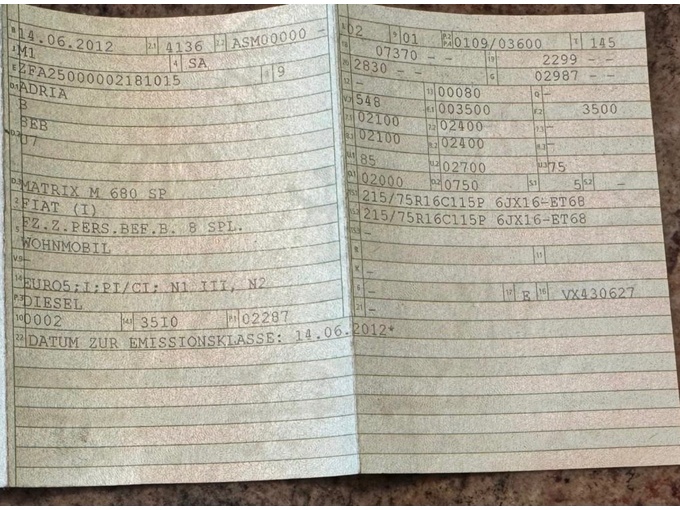 B 14.06.2012 2.1 4136 2.2 ASM00000 -
J M1 4 SA
E ZFA25000002181015 3 9
D.1 ADRIA
B
D.2 BEB
U7
D.3 MATRIX M 680 SP
2 FIAT (I)
5 FZ.Z.PERS.BEF.B. 8 SPL.
WOHNMOBIL
V.9 -
14 EURO5;I;PI/CI; N1 III, N2
P.3 DIESEL
10 0002 14.1 35I0 P.1 02287
22 DATUM ZUR EMISSIONSKLASSE: 14.06.2012*
L 02 9 01 P.2 P.4 0109/03600 T 145
18 07370 - - 19 2299 - -
20 2830 - - G 02987 - -
12 - 13 00080 Q -
V.7 548 F.1 003500 F.2 3500
7.1 02100 7.2 02400 7.3 -
8.1 02100 8.2 02400 8.3 -
U.1 85 U.2 02700 U.3 75
O.1 02000 O.2 0750 S.1 5 S.2 -
15.1 215/75R16C115P 6JX16-ET68
15.2 215/75R16C115P 6JX16-ET68
15.3 -
R - 11
K -
6 - 17 E 16 VX430627
21 -